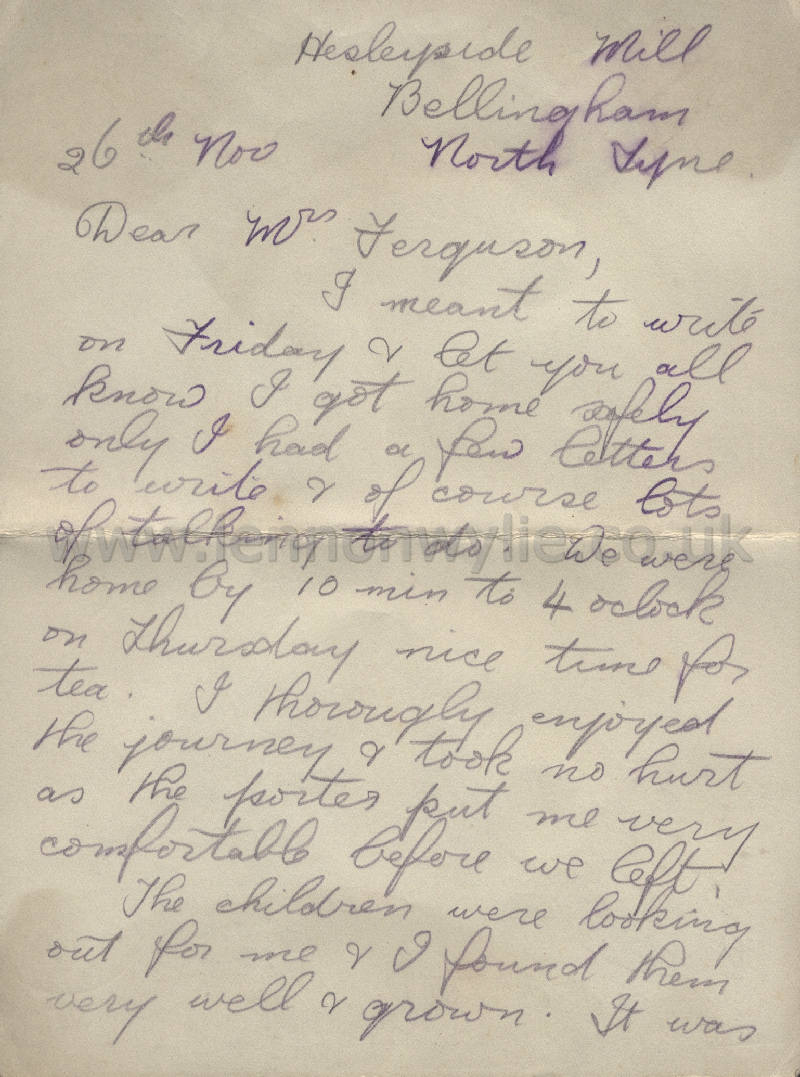 Hesleyside Mill
Bellingham
26th Nov North Tyne.
Dear Mrs Ferguson,
I meant to write
on Friday & let you all
know I got home safely
only I had a few letters
to write & of course lots
of talking to do. We were
www.lennonwylie.co.uk
home by 10 min to 4 oclock
on Thursday nice time for
tea. I thorougly enjoyed
the journey & took no hurt
as the porter put me very
comfortable before we left.
The children were looking
out for me & I found them
very well & grown. It was